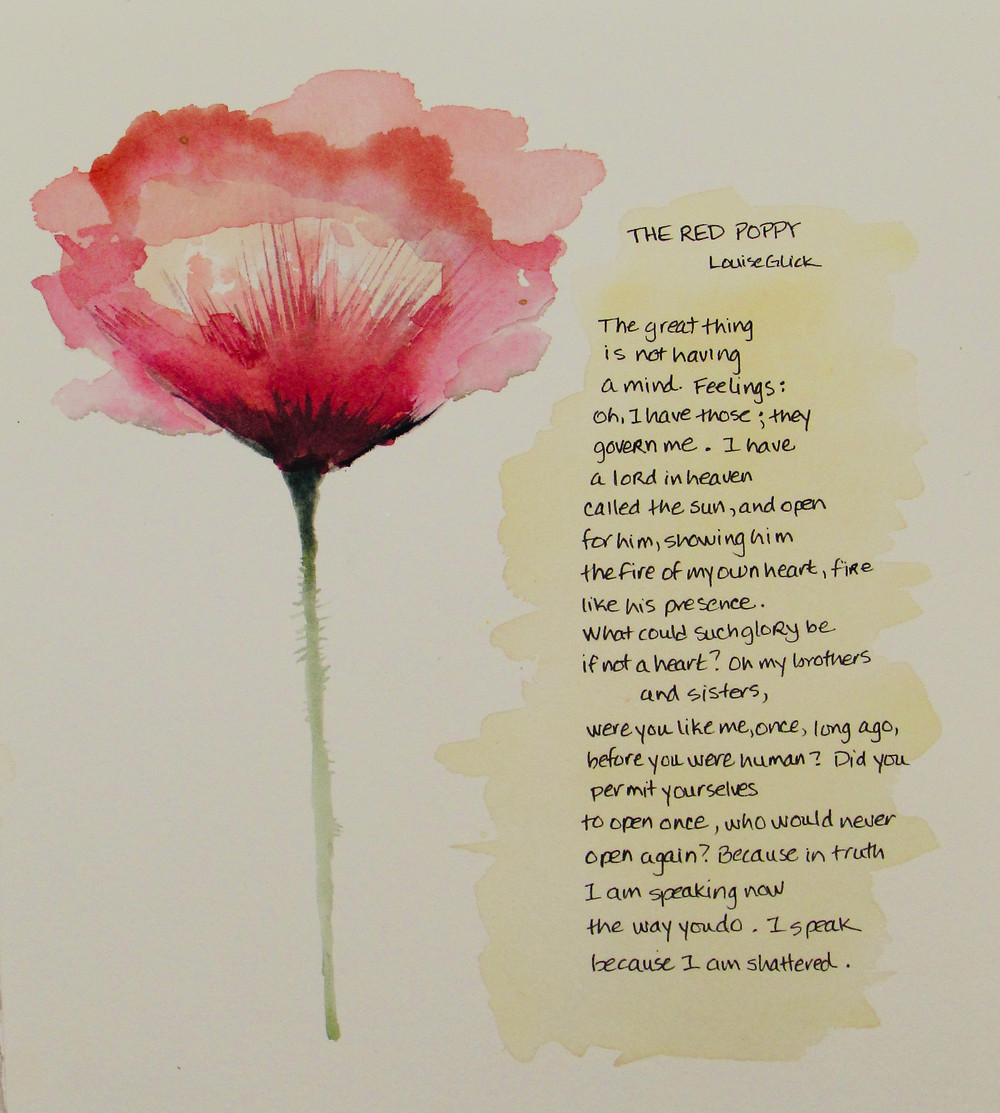 THE RED POPPY
Louise Glick
The great thing
is not having
a mind. Feelings:
oh, I have those; they
govern me. I have
a lord in heaven
called the sun, and open
for him, showing him
the fire of my own heart, fire
like his presence.
What could such glory be
if not a heart? Oh my brothers
and sisters,
were you like me, once, long ago,
before you were human? Did you
permit yourselves
to open once, who would never
open again? Because in truth
I am speaking now
the way you do. I speak
because I am shattered.